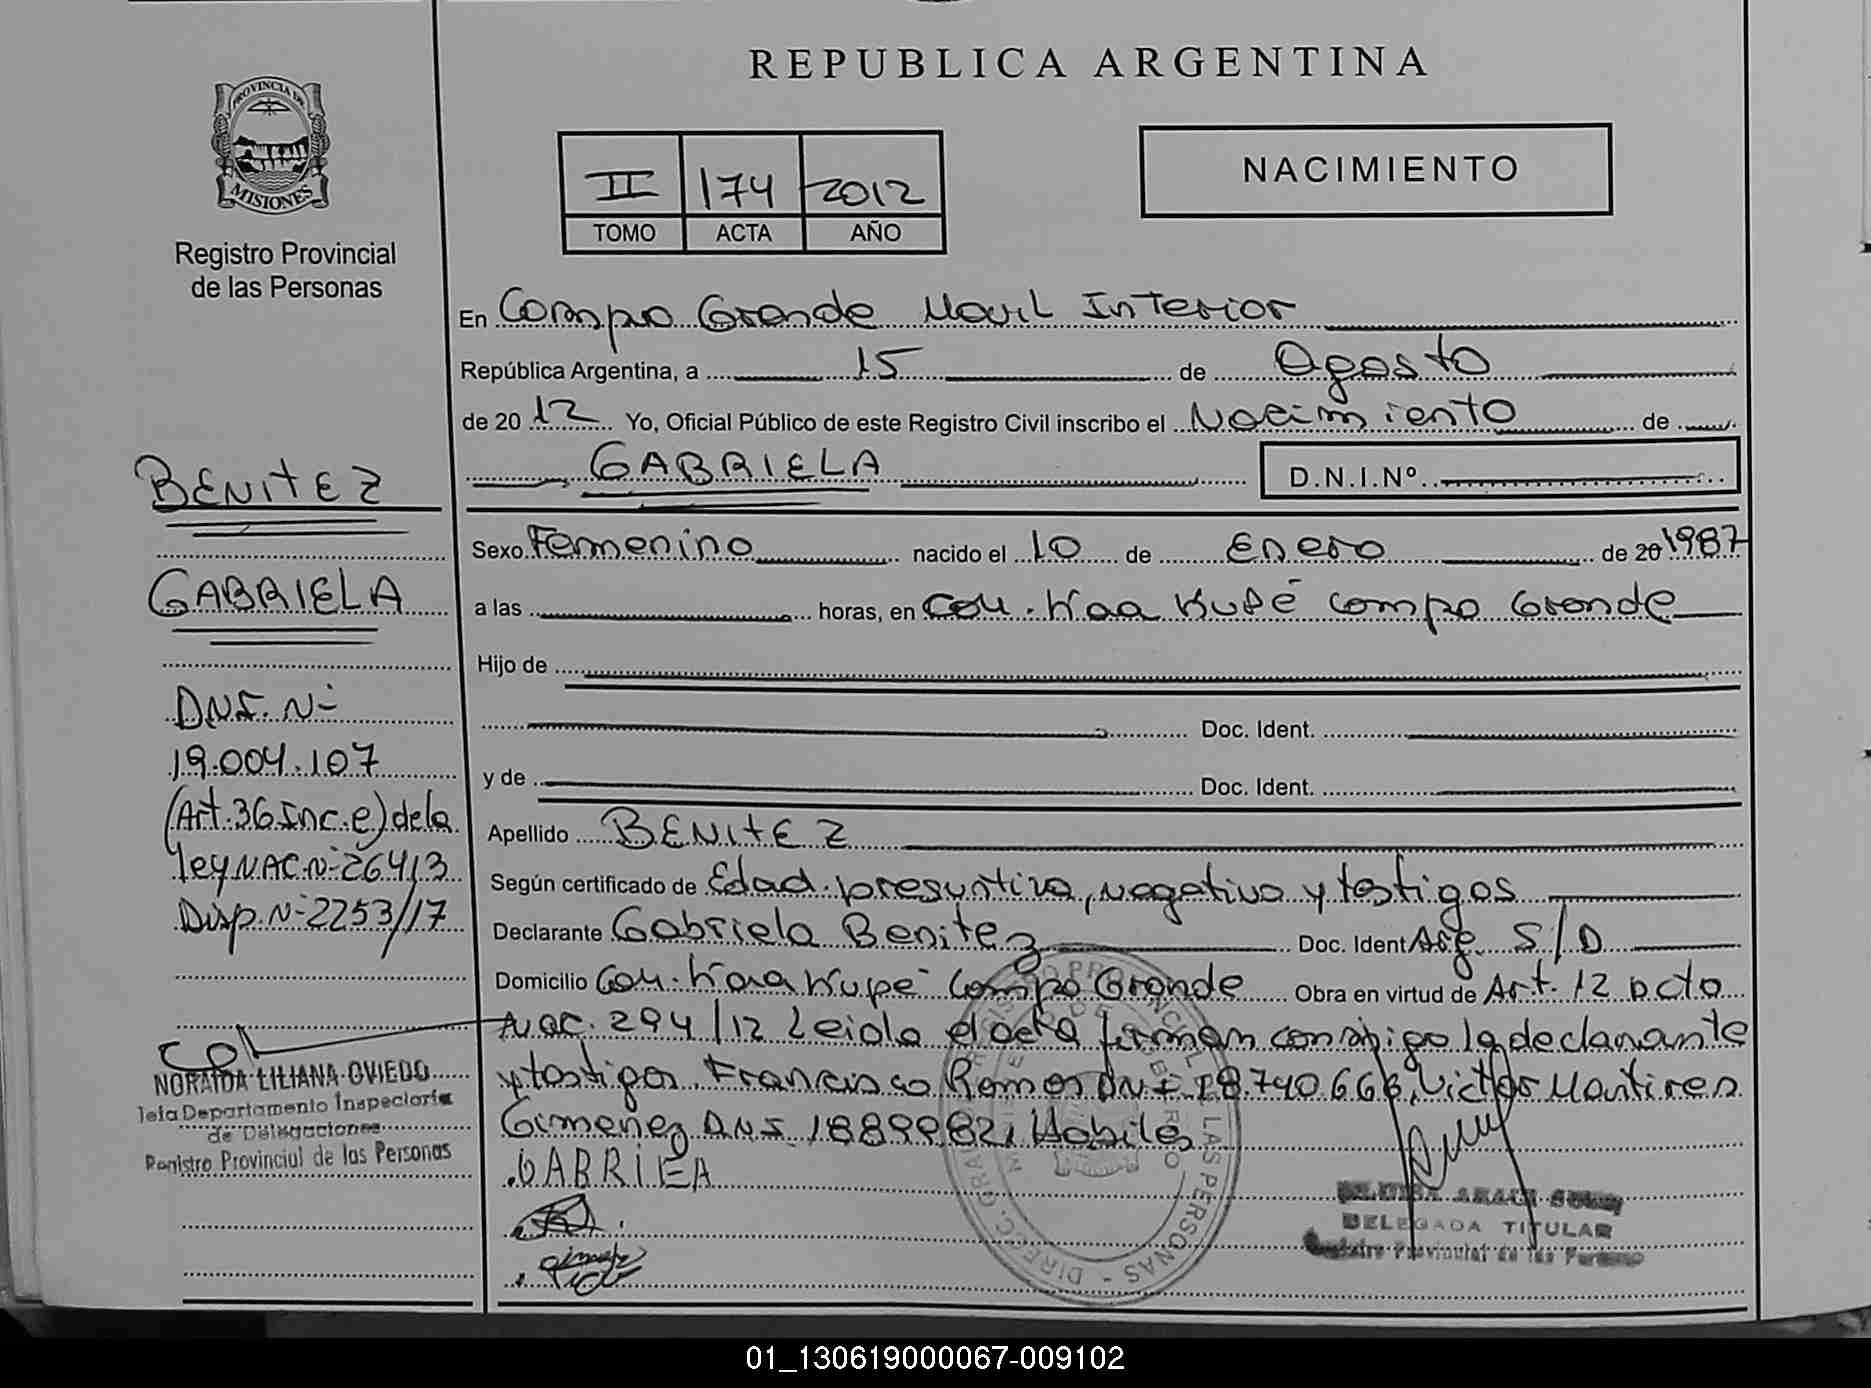 REPUBLICA ARGENTINA
PROVINCIA DE
MISIONES
Registro Provincial
de las Personas
II 174 2012
TOMO ACTA AÑO
NACIMIENTO
En Campo Grande Movil Interior
República Argentina, a 15 de Agosto
de 20 12 Yo, Oficial Público de este Registro Civil inscribo el Nacimiento de
GABRIELA D.N.I.Nº
Sexo Femenino nacido el 10 de Enero de 20 1987
a las horas, en Com. Kaa Kupé Campo Grande
Hijo de
Doc. Ident.
y de Doc. Ident.
Apellido BENITEZ
Según certificado de Edad presuntiva, negativo y testigos
Declarante Gabriela Benitez Doc. Ident Arg. S/D
Domicilio Com. Kaa Kupe Campo Grande Obra en virtud de Art. 12 Dcto
Nac. 294/12 Leida el acta firman conmigo la declarante
y testigos Francisco Ramos DNI 18.740.668, Victor Martires
Gimenez DNI 18899821 Habiles
GABRIEA
DELEGADA TITULAR
Registro Provincial de las Personas
BENITEZ
GABRIELA
DNI. Nº
19.004.107
(Art. 36 Inc. e) de la
ley NAC. Nº 26413
Disp. Nº 2253/17
NORAIDA LILIANA OVIEDO
Jefa Departamento Inspectoría
de Delegaciones
Registro Provincial de las Personas
LAS PERSONAS - DIRECC. GRAL
01_130619000067-009102